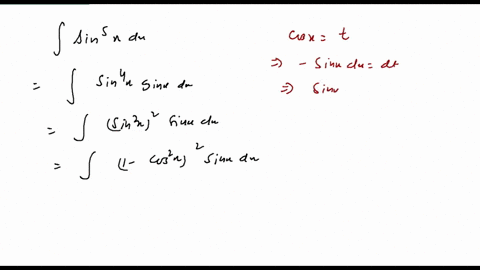 ∫ sin⁵x dx
= ∫ sin⁴x sinx dx
= ∫ (sin²x)² sinx dx
= ∫ (1 - cos²x)² sinx dx
cosx = t
⇒ - sinx dx = dt
⇒ sinx